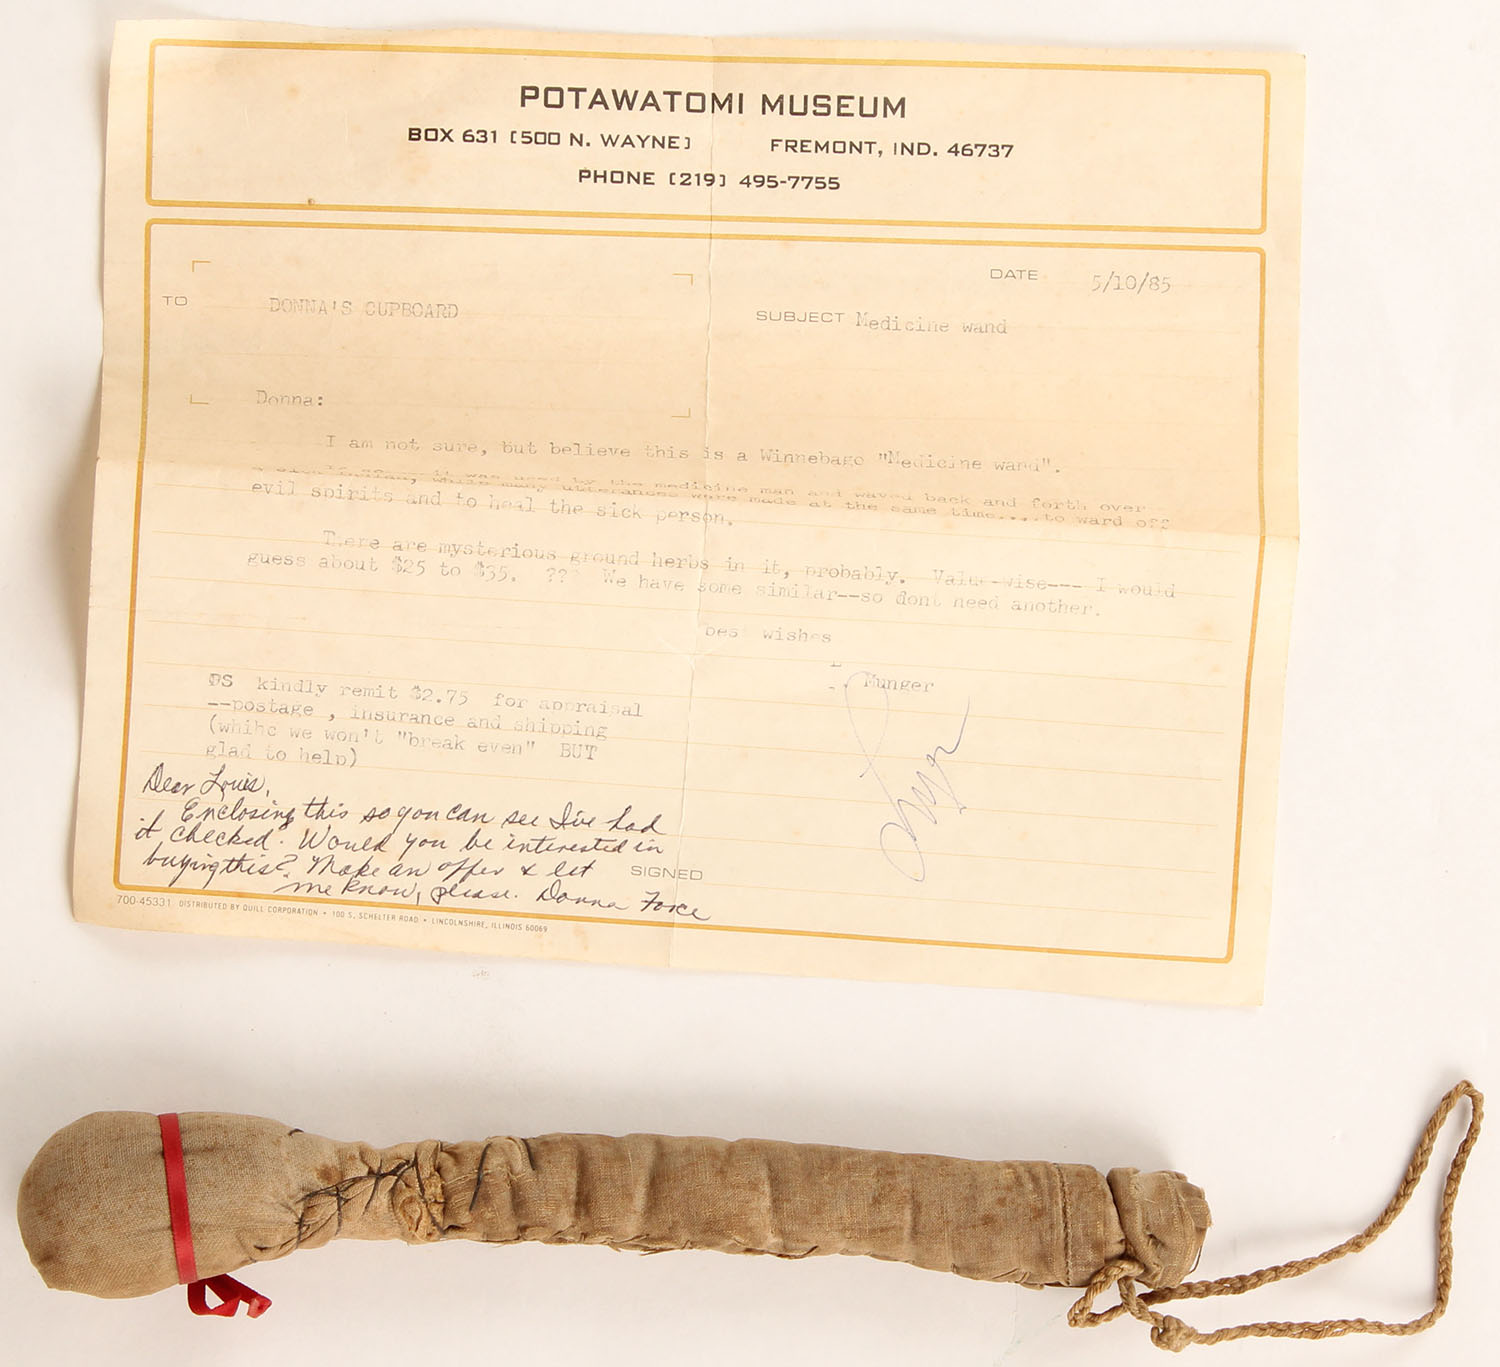 POTAWATOMI MUSEUM
BOX 631 (500 N. WAYNE) FREMONT, IND. 46737
PHONE (219) 495-7755
DATE 5/10/85
TO DONNA'S CUPBOARD
SUBJECT Medicine wand
Donna:
I am not sure, but believe this is a Winnebago "Medicine wand".
it was used by the medicine man and waved back and forth over
while many utterances were made at the same time....to ward off
evil spirits and to heal the sick person.
There are mysterious ground herbs in it, probably. Value-wise--- I would
guess about $25 to $35. ??? We have some similar--so dont need another.
bes wishes
Munger
PS kindly remit $2.75 for appraisal
--postage , insurance and shipping
(whihc we won't "break even" BUT
glad to help)
Dear Louis,
Enclosing this so you can see I've had
it checked. Would you be interested in
buying this? Make an offer & let
me know, please. Donna Force
SIGNED
700-45331 DISTRIBUTED BY QUILL CORPORATION • 100 S. SCHELTER ROAD • LINCOLNSHIRE, ILLINOIS 60069